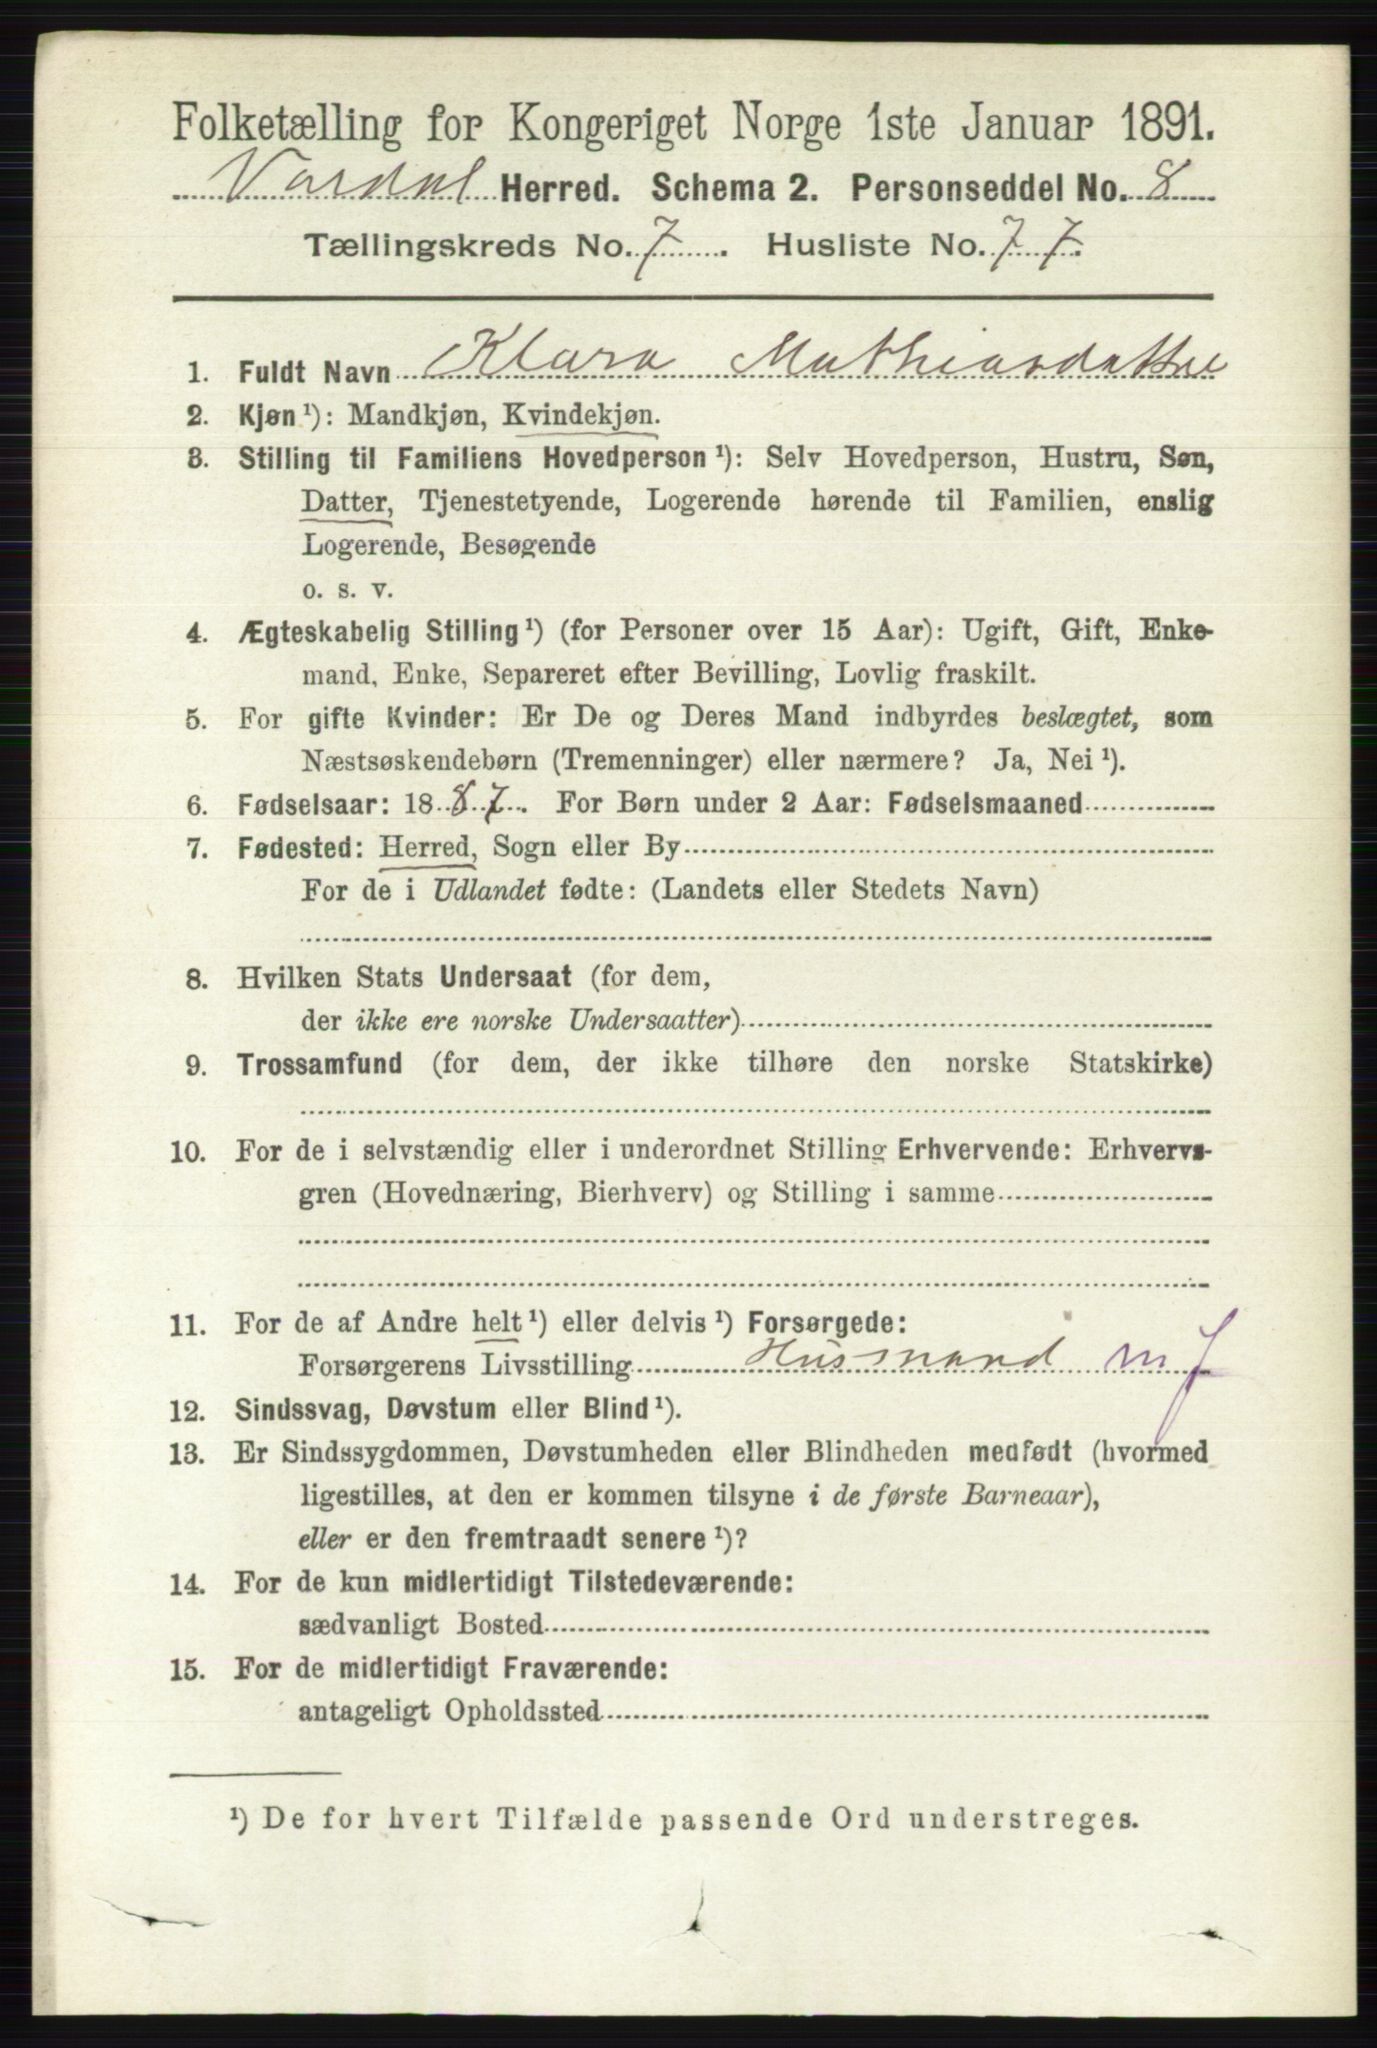 Folketælling for Kongeriget Norge 1ste Januar 1891.
Vardal Herred. Schema 2. Personseddel No. 8
Tællingskreds No. 7. Husliste No. 77.
1. Fuldt Navn Klara Mathiasdatter
2. Kjøn¹): Mandkjøn, Kvindekjøn.
3. Stilling til Familiens Hovedperson¹): Selv Hovedperson, Hustru, Søn,
Datter, Tjenestetyende, Logerende hørende til Familien, enslig
Logerende, Besøgende
o. s. v.
4. Ægteskabelig Stilling¹) (for Personer over 15 Aar): Ugift, Gift, Enke-
mand, Enke, Separeret efter Bevilling, Lovlig fraskilt.
5. For gifte Kvinder: Er De og Deres Mand indbyrdes beslægtet, som
Næstsøskendebørn (Tremenninger) eller nærmere? Ja, Nei¹).
6. Fødselsaar: 1887. For Børn under 2 Aar: Fødselsmaaned
7. Fødested: Herred, Sogn eller By
For de i Udlandet fødte: (Landets eller Stedets Navn)
8. Hvilken Stats Undersaat (for dem,
der ikke ere norske Undersaatter)
9. Trossamfund (for dem, der ikke tilhøre den norske Statskirke)
10. For de i selvstændig eller i underordnet Stilling Erhvervende: Erhvervs-
gren (Hovednæring, Bierhverv) og Stilling i samme
11. For de af Andre helt¹) eller delvis¹) Forsørgede:
Forsørgerens Livsstilling Husmand m J
12. Sindssvag, Døvstum eller Blind¹).
13. Er Sindssygdommen, Døvstumheden eller Blindheden medfødt (hvormed
ligestilles, at den er kommen tilsyne i de første Barneaar),
eller er den fremtraadt senere¹)?
14. For de kun midlertidigt Tilstedeværende:
sædvanligt Bosted
15. For de midlertidigt Fraværende:
antageligt Opholdssted
¹) De for hvert Tilfælde passende Ord understreges.